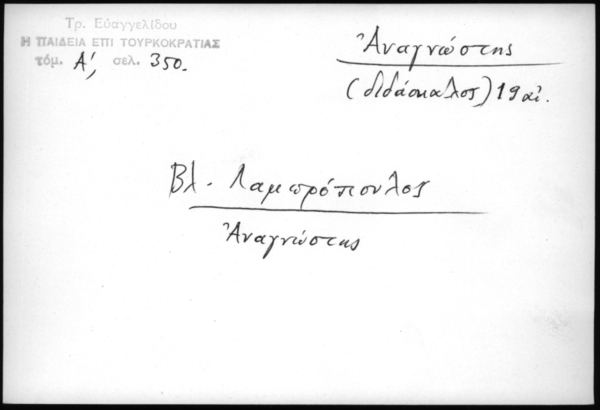 Τρ. Εὐαγγελίδου
Η ΠΑΙΔΕΙΑ ΕΠΙ ΤΟΥΡΚΟΚΡΑΤΙΑΣ
τόμ. Α', σελ. 350.
Ἀναγνώστης
(διδάσκαλος) 19 αἰ.
Βλ. Λαμπρόπουλος
Ἀναγνώστης